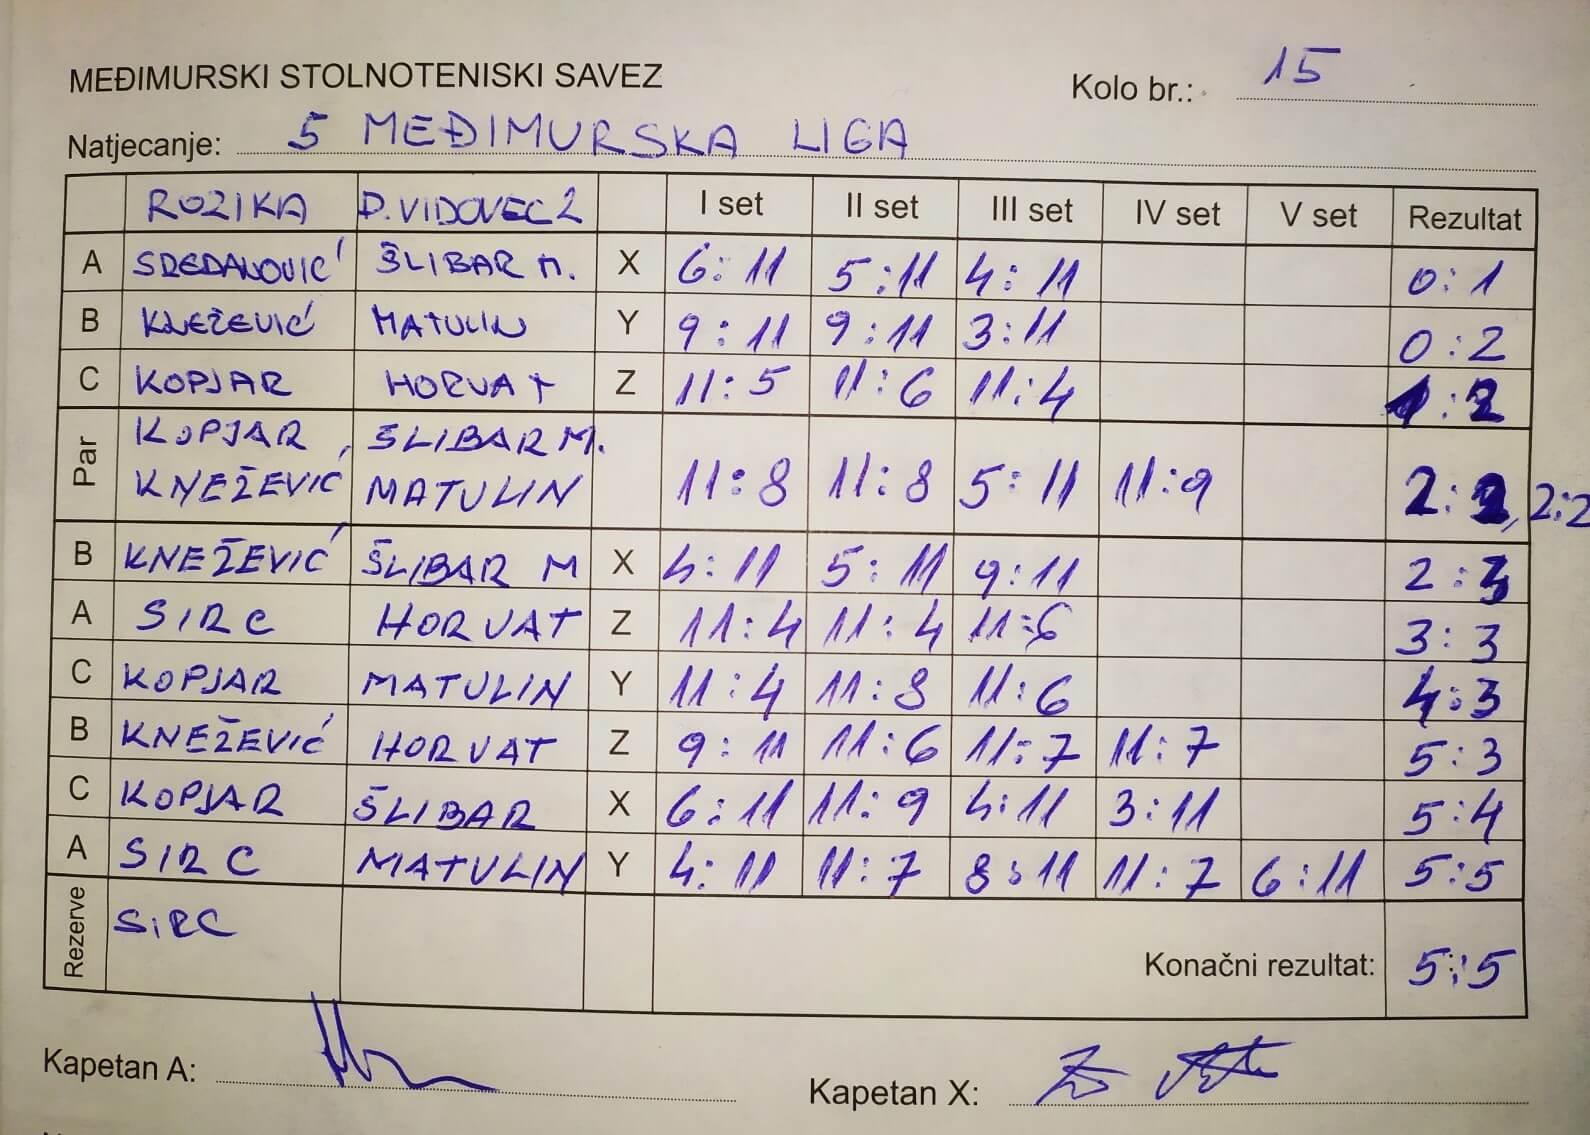 MEĐIMURSKI STOLNOTENISKI SAVEZ Kolo br.: 15
Natjecanje: 5 MEĐIMURSKA LIGA
ROZIKA D.VIDOVEC 2 I set II set III set IV set V set Rezultat
A SREDANOVIĆ ŠLIBAR M. X 6:11 5:11 4:11 0:1
B KNEŽEVIĆ MATULIN Y 9:11 9:11 3:11 0:2
C KOPJAR HORVAT Z 11:5 11:6 11:4 1:2
Par KOPJAR, ŠLIBAR M.
KNEŽEVIĆ MATULIN 11:8 11:8 5:11 11:9 2:2, 2:2
B KNEŽEVIĆ ŠLIBAR M X 4:11 5:11 9:11 2:3
A SIRC HORVAT Z 11:4 11:4 11:6 3:3
C KOPJAR MATULIN Y 11:4 11:8 11:6 4:3
B KNEŽEVIĆ HORVAT Z 9:11 11:6 11:7 11:7 5:3
C KOPJAR ŠLIBAR X 6:11 11:9 4:11 3:11 5:4
A SIRC MATULIN Y 4:11 11:7 8:11 11:7 6:11 5:5
Rezerve SIRC
Konačni rezultat: 5:5
Kapetan A:
Kapetan X: